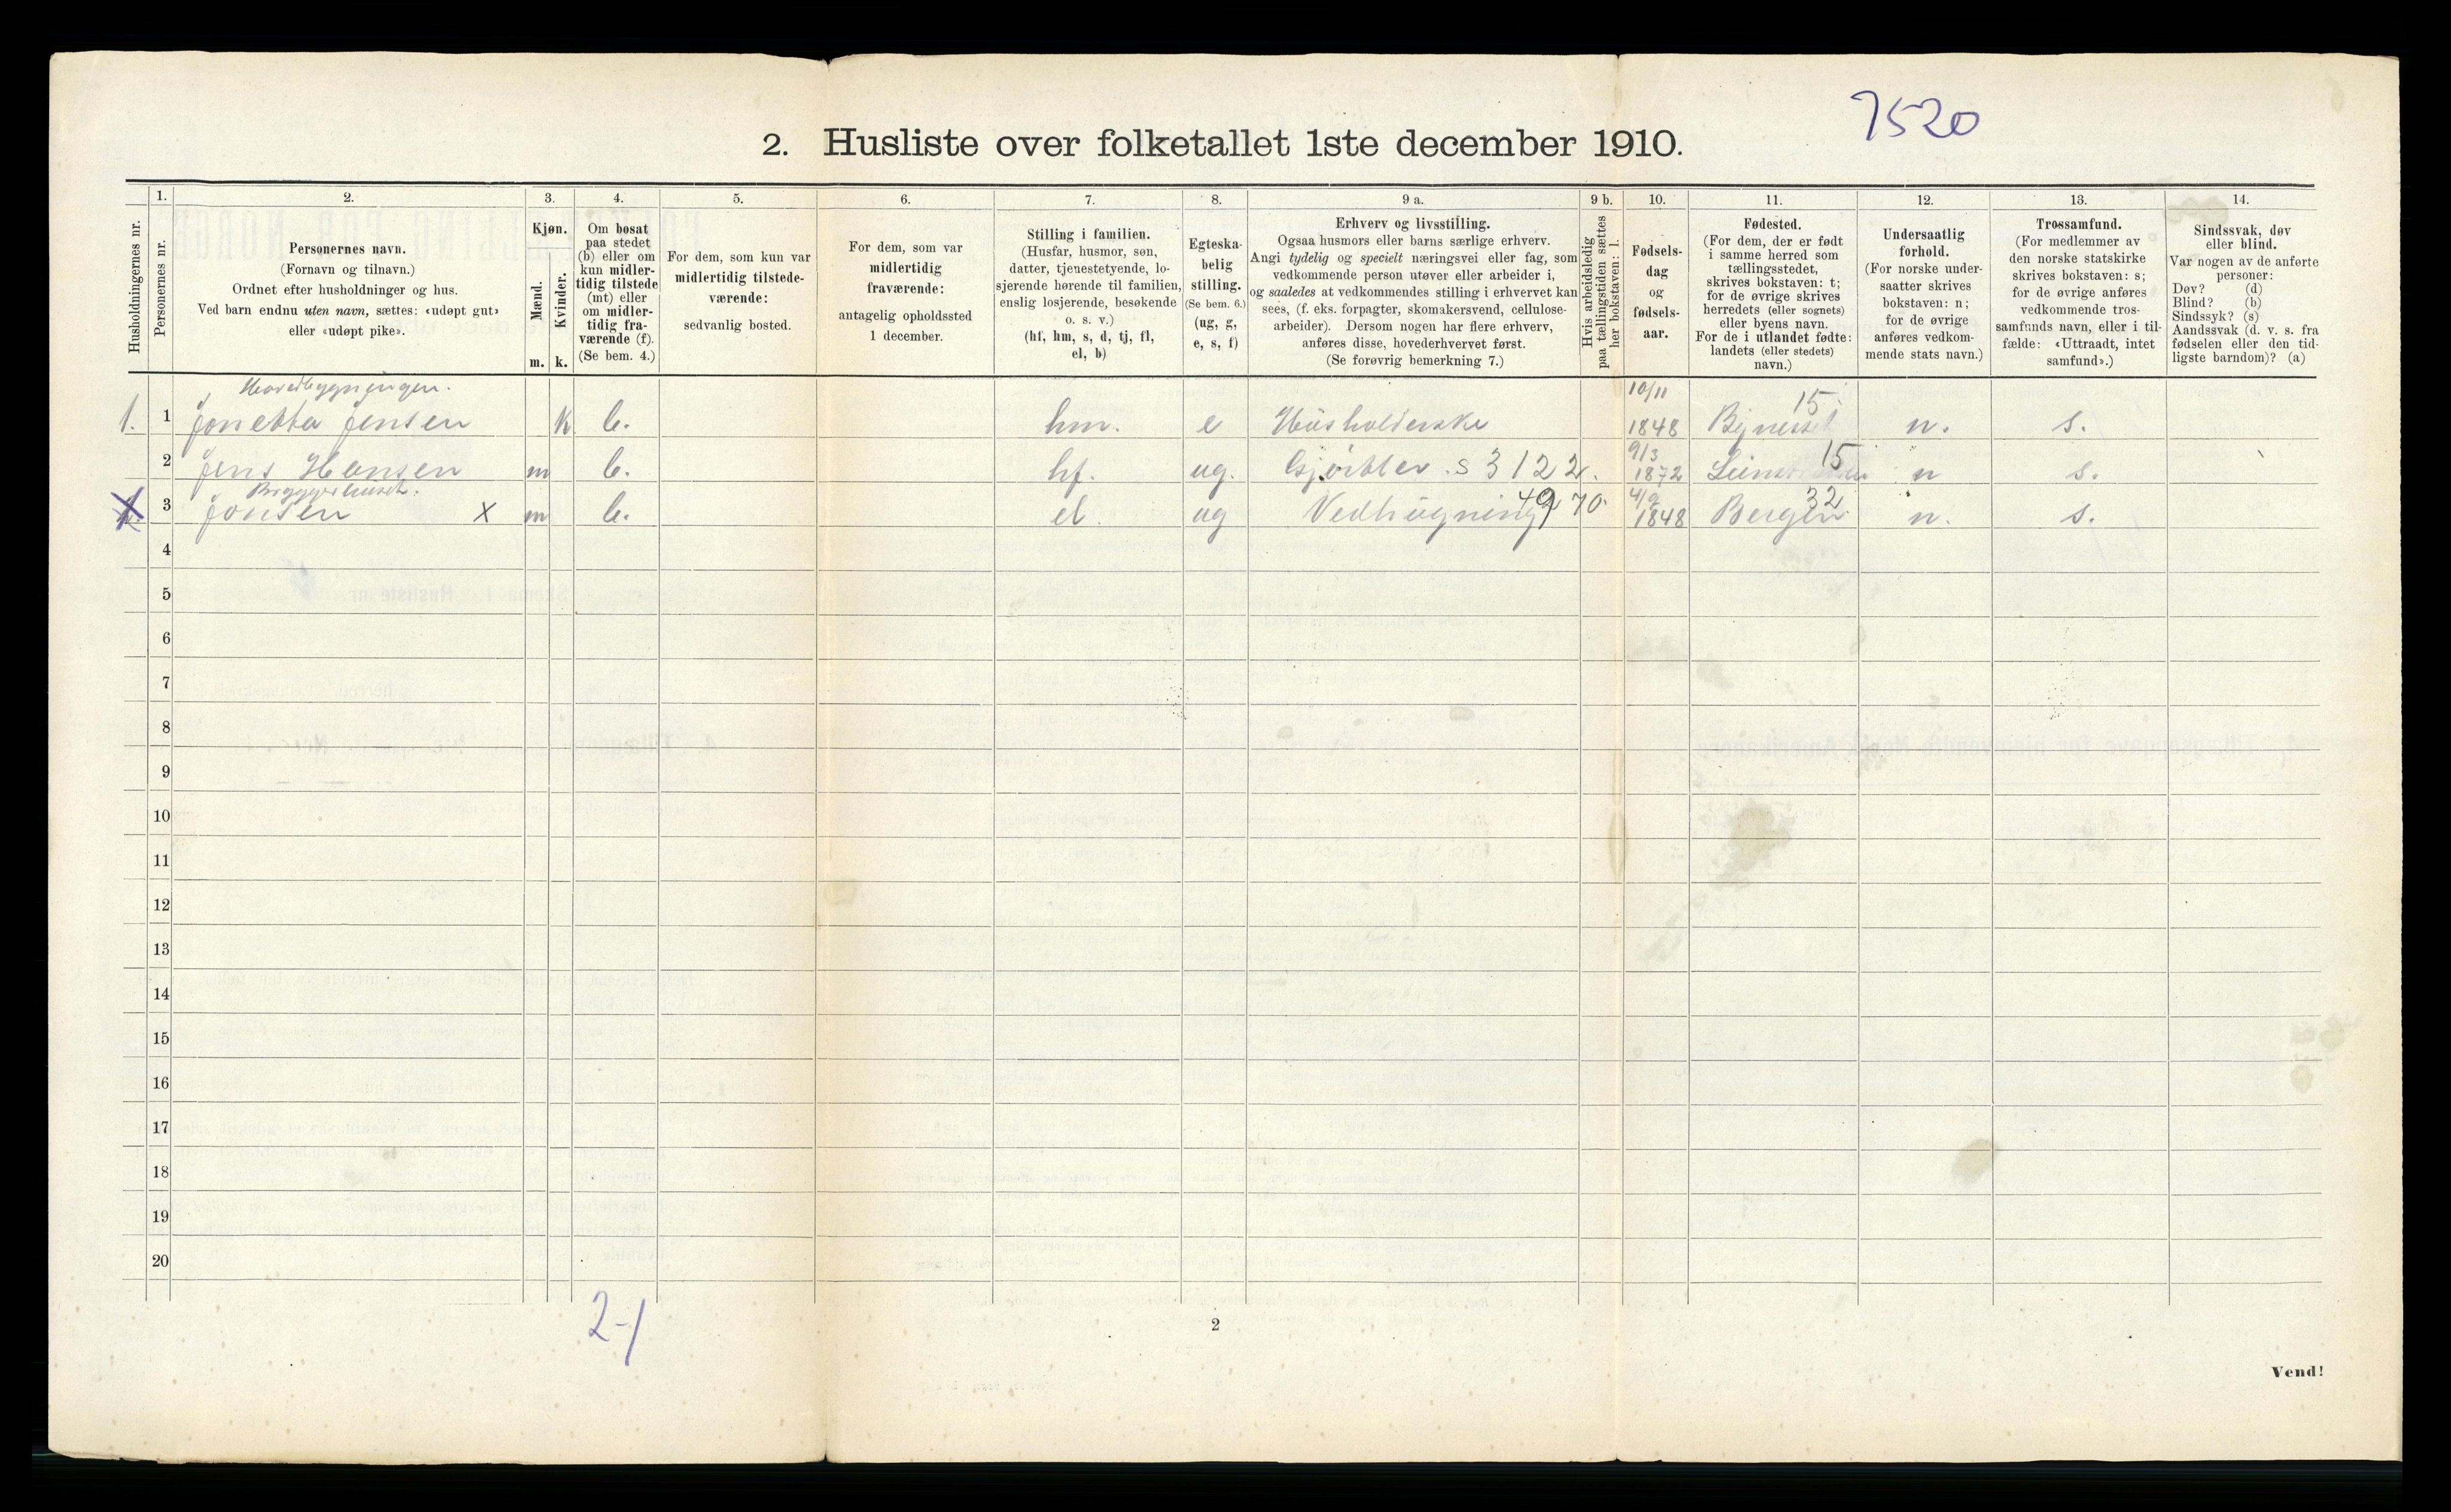 7520
2. Husliste over folketallet 1ste december 1910.
Husholdningernes nr.
1.
Personernes nr.
2.
Personernes navn.
(Fornavn og tilnavn.)
Ordnet efter husholdninger og hus.
Ved barn endnu uten navn, sættes: «udøpt gut»
eller «udøpt pike».
3.
Kjøn.
Mænd.
m.
Kvinder.
k.
4.
Om bosat
paa stedet
(b) eller om
kun midler-
tidig tilstede
(mt) eller
om midler-
tidig fra-
værende (f).
(Se bem. 4.)
5.
For dem, som kun var
midlertidig tilstede-
værende:
sedvanlig bosted.
6.
For dem, som var
midlertidig
fraværende:
antagelig opholdssted
1 december.
7.
Stilling i familien.
(Husfar, husmor, søn,
datter, tjenestetyende, lo-
sjerende hørende til familien,
enslig losjerende, besøkende
o. s. v.)
(hf, hm, s, d, tj, fl,
el, b)
8.
Egteska-
belig
stilling.
(Se bem. 6.)
(ug, g,
e, s, f)
9 a.
Erhverv og livsstilling.
Ogsaa husmors eller barns særlige erhverv.
Angi tydelig og specielt næringsvei eller fag, som
vedkommende person utøver eller arbeider i,
og saaledes at vedkommendes stilling i erhvervet kan
sees, (f. eks. forpagter, skomakersvend, cellulose-
arbeider). Dersom nogen har flere erhverv,
anføres disse, hovederhvervet først.
(Se forøvrig bemerkning 7.)
9 b.
Hvis arbeidsledig
paa tællingstiden sættes
her bokstaven: l.
10.
Fødsels-
dag
og
fødsels-
aar.
11.
Fødested.
(For dem, der er født
i samme herred som
tællingsstedet,
skrives bokstaven: t;
for de øvrige skrives
herredets (eller sognets)
eller byens navn.
For de i utlandet fødte:
landets (eller stedets)
navn.)
12.
Undersaatlig
forhold.
(For norske under-
saatter skrives
bokstaven: n;
for de øvrige
anføres vedkom-
mende stats navn.)
13.
Trossamfund.
(For medlemmer av
den norske statskirke
skrives bokstaven: s;
for de øvrige anføres
vedkommende tros-
samfunds navn, eller i til-
fælde: «Uttraadt, intet
samfund».)
14.
Sindssvak, døv
eller blind.
Var nogen av de anførte
personer:
Døv? (d)
Blind? (b)
Sindssyk? (s)
Aandssvak (d. v. s. fra
fødselen eller den tid-
ligste barndom)? (a)
Hovedbygningen.
1. 1 Jonetta Jensen k b. hm. e Husholderske 10/11 1848 Bynesset 15 n. s.
2 Jens Hansen m b. hf. ug. Gjørtler s 3122. 9/3 1872 15 n s.
Bryggerhuset.
3 Jonsen x m b. el. ug Vedhugning 4970 4/9 1848 Bergen 32 n. s.
4
5
6
7
8
9
10
11
12
13
14
15
16
17
18
19
20
2-1
2
Vend!